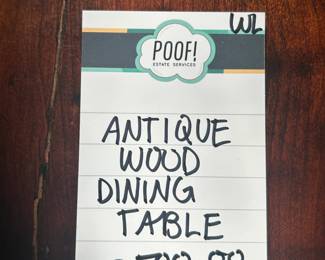 WL
POOF!
ESTATE SERVICES
ANTIQUE
WOOD
DINING
TABLE